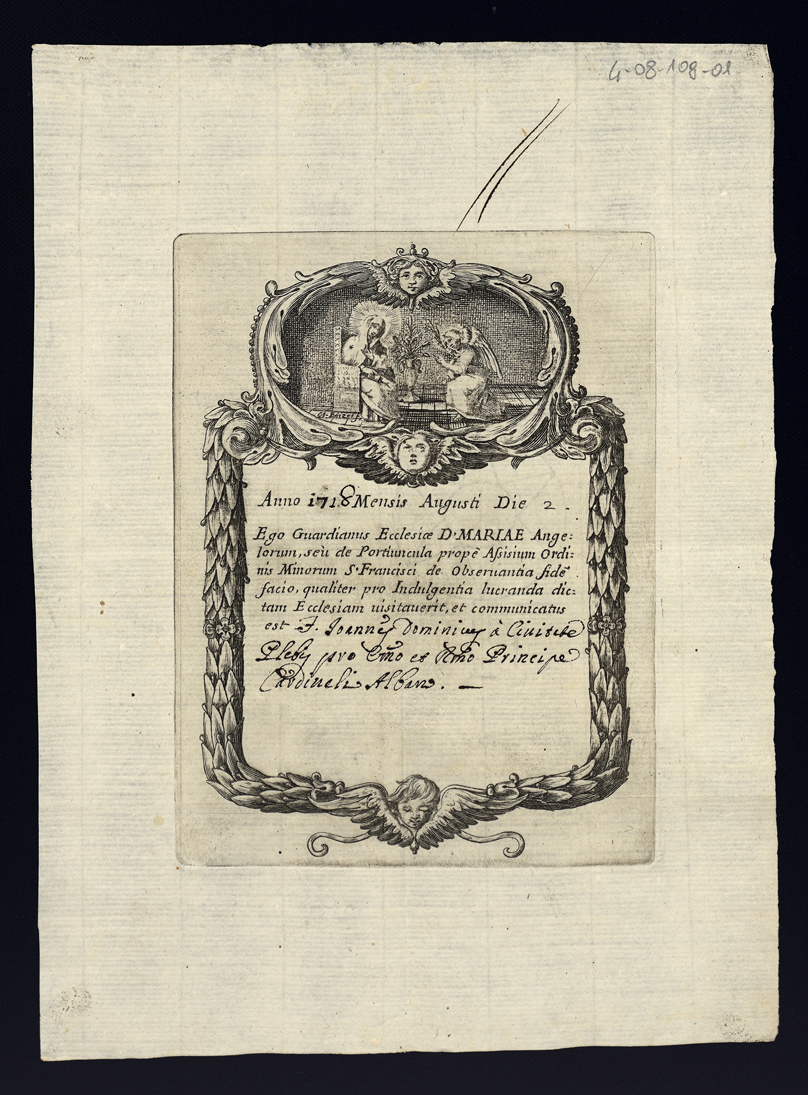 4-08-108-01
Anno 1718 Mensis Augusti Die 2.
Ego Guardianus Ecclesiæ D. MARIAE Ange=
lorum, seù de Portiuncula propè Assisium Ordi=
nis Minorum S. Francisci de Obseruantia fidē
facio, qualiter pro Indulgentia lucranda dic=
tam Ecclesiam uisitauerit, et communicatus
est F. Joannes Dominicus à Ciuitate
Plebis pro Emo et Rmo Principe
Cardinali Albano. —